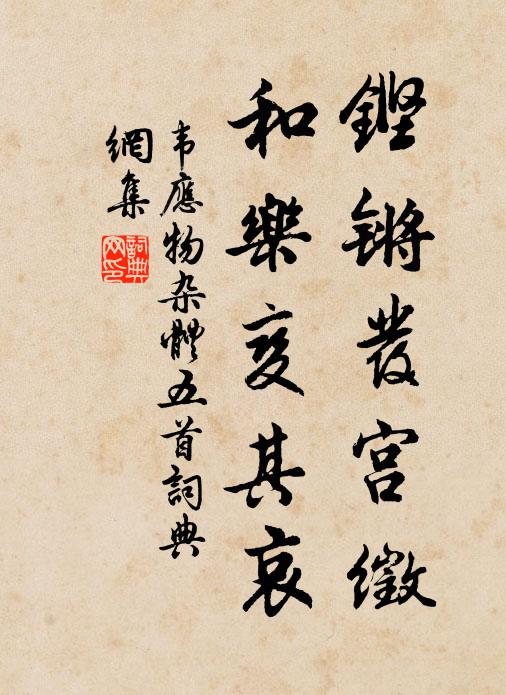 鏗锵發宫徵
和樂变其哀
韦應物杂體五首詞典
網集
詞典
网印